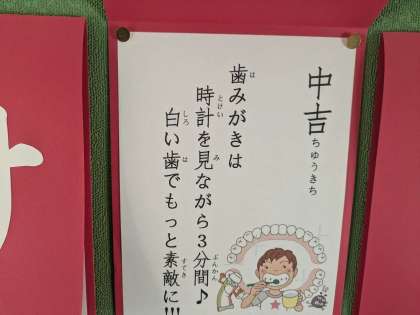 中吉
ちゅうきち
歯みがきは
時計を見ながら３分間♪
白い歯でもっと素敵に!!!